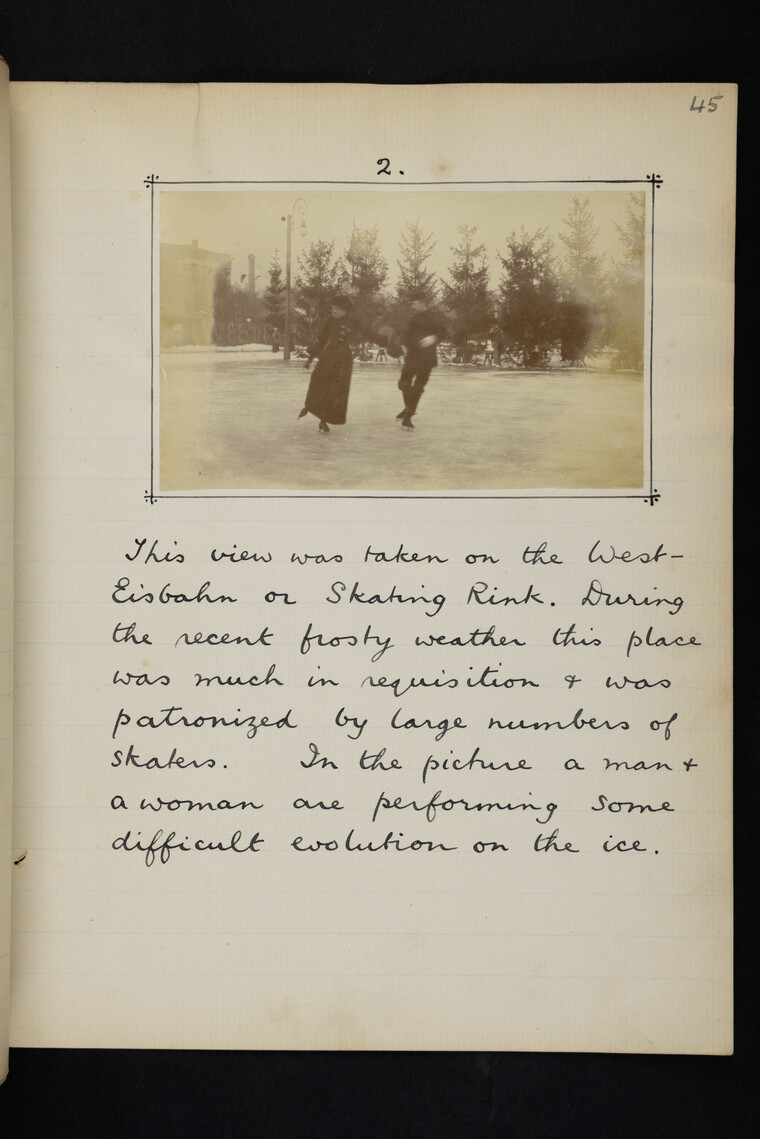 45
2.
This view was taken on the West-
Eisbahn or Skating Rink. During
the recent frosty weather this place
was much in requisition & was
patronized by large numbers of
skaters. In the picture a man &
a woman are performing some
difficult evolution on the ice.